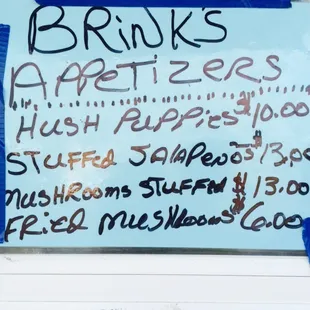 BRINK'S
APPETIZERS
HUSH PUPPIES $10.00
STUFFED JALAPENOS $13.00
MUSHROOMS STUFFED $13.00
FRIED MUSHROOMS $6.00